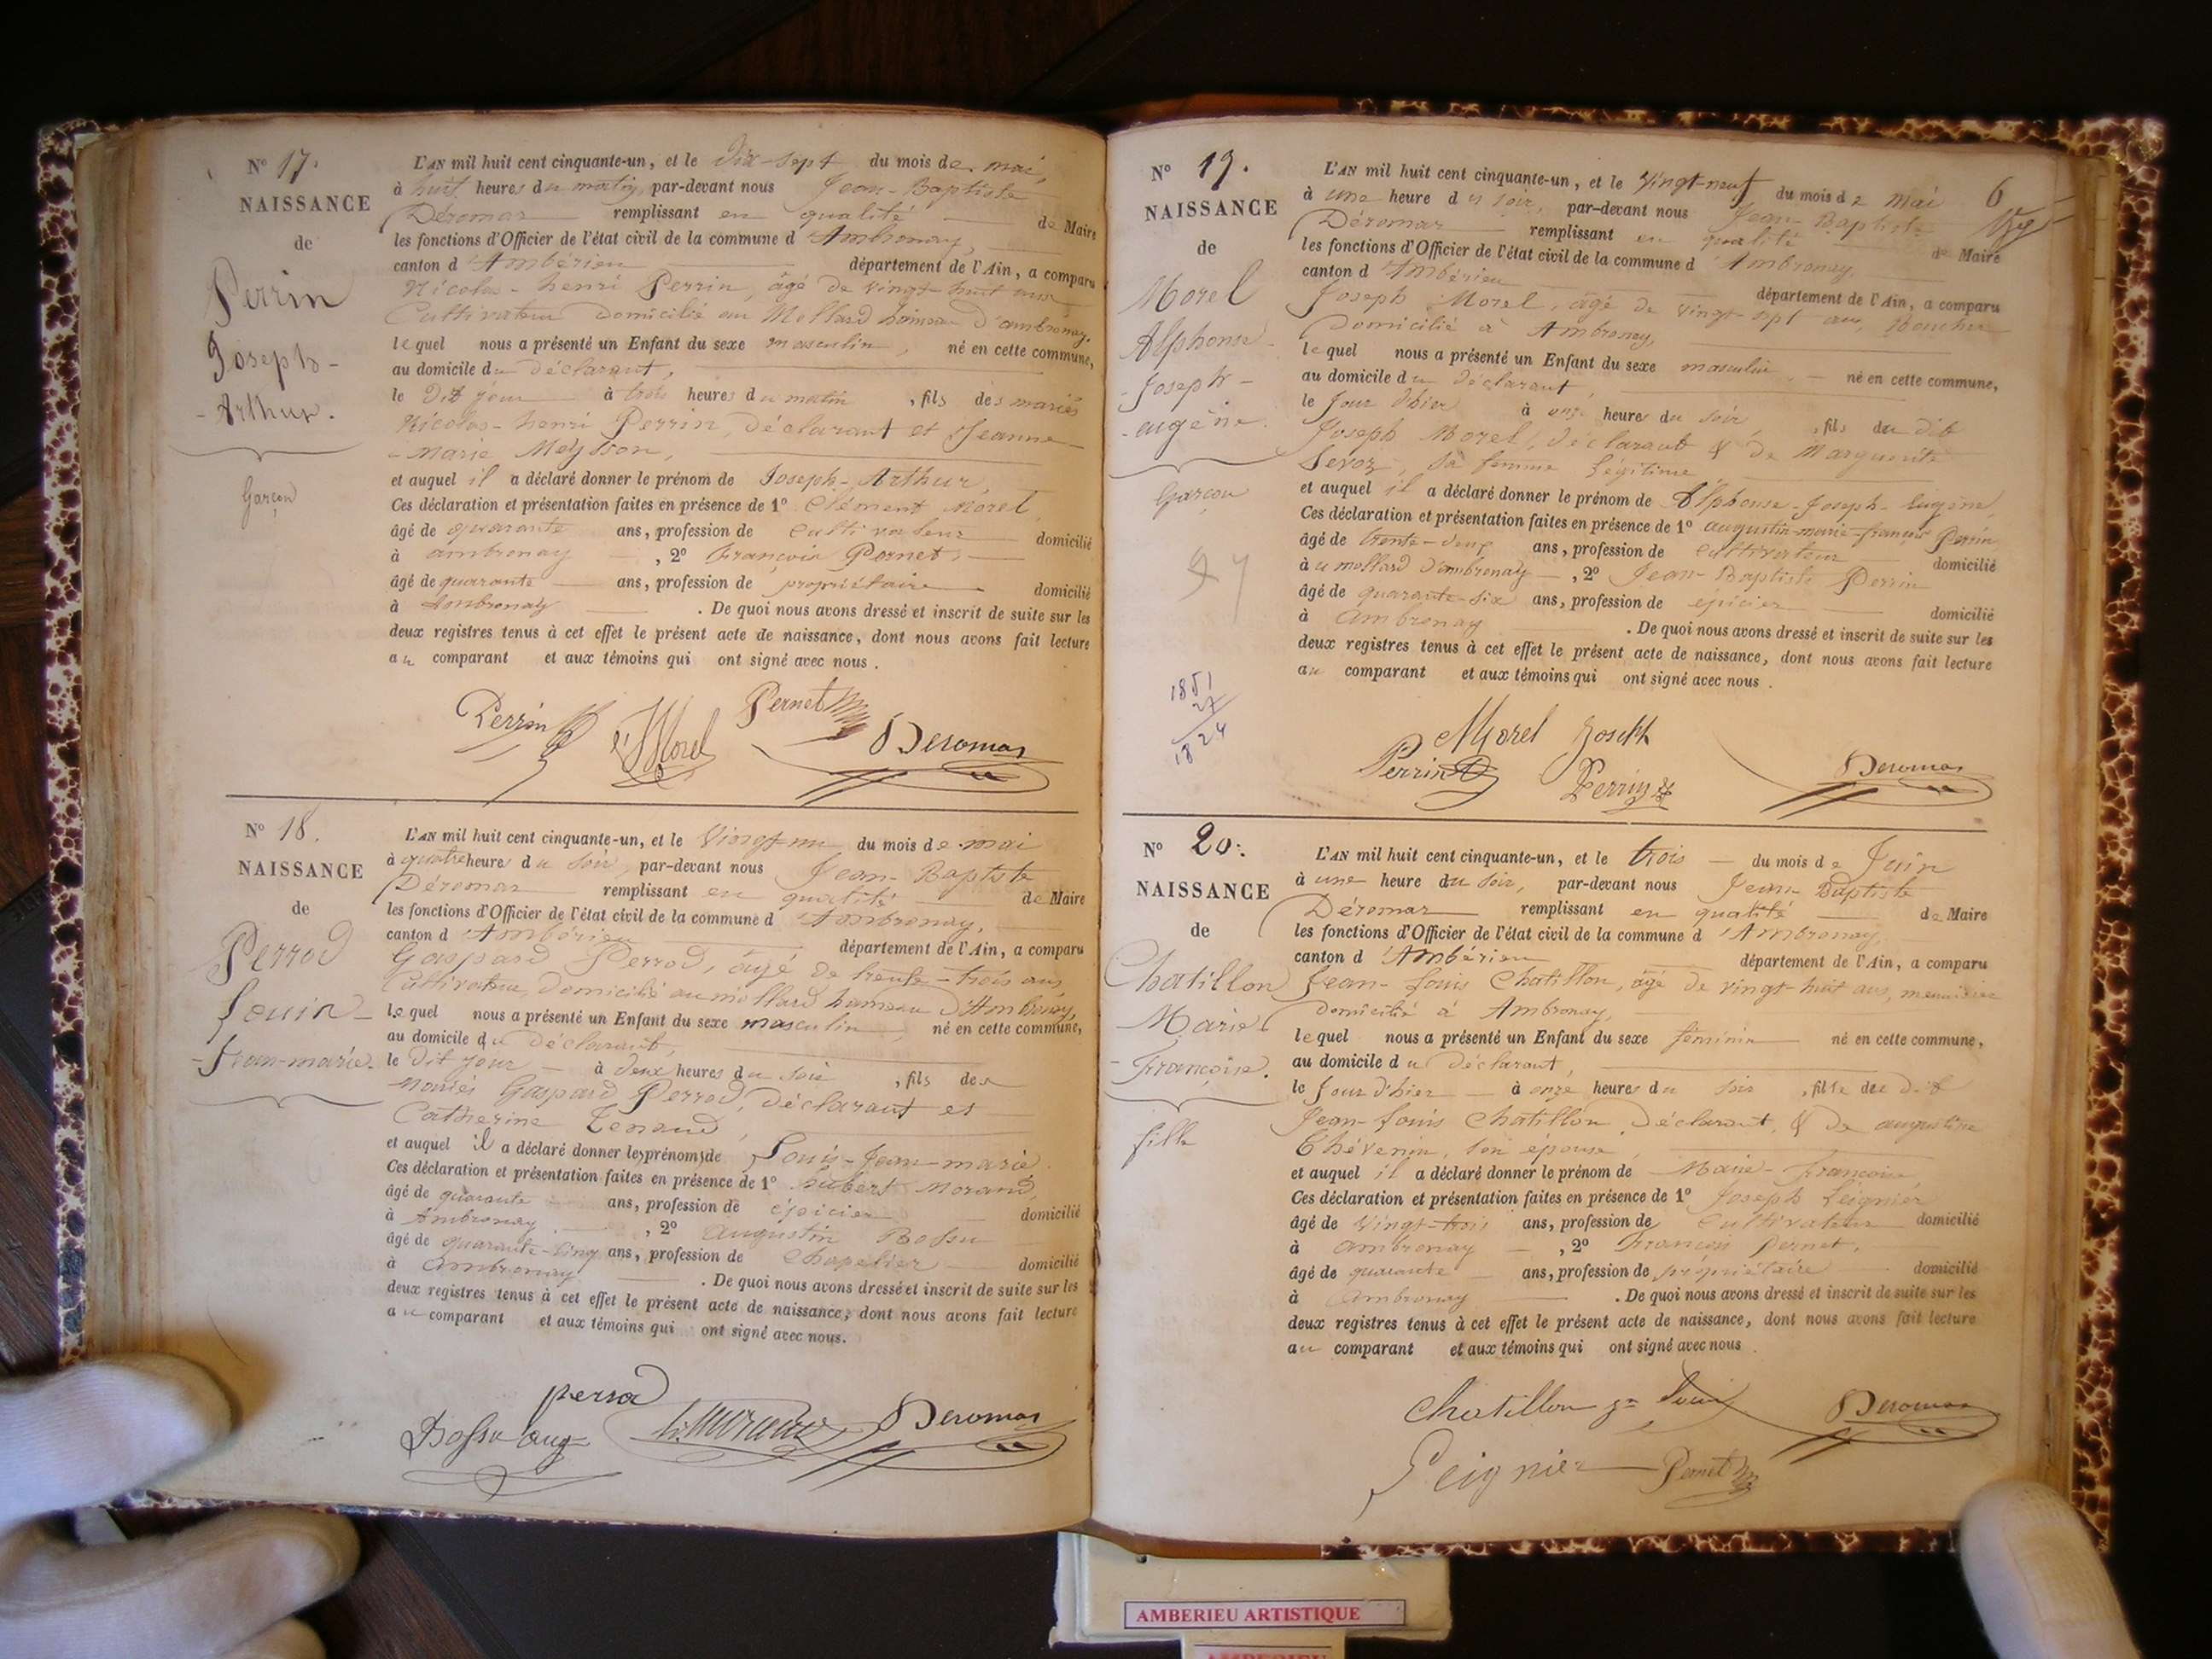 N° 17.
NAISSANCE
de
Perrin
Joseph-
-Arthur.
Garçon
L'AN mil huit cent cinquante-un, et le Dix-sept du mois de mai,
à huit heures du matin, par-devant nous Jean-Baptiste
Déromas remplissant en qualité de Maire
les fonctions d'Officier de l'état civil de la commune d'Ambronay,
canton d'Ambérieu département de l'Ain, a comparu
Nicolas-henri Perrin, âgé de vingt-huit ans
Cultivateur domicilié au Mollard hameau d'ambronay,
lequel nous a présenté un Enfant du sexe masculin, né en cette commune,
au domicile du déclarant,
le dit jour à trois heures du matin, fils des mariés
Nicolas-henri Perrin, déclarant et Jeanne-
-Marie Meysson,
et auquel il a déclaré donner le prénom de Joseph-Arthur,
Ces déclaration et présentation faites en présence de 1° Clément Morel,
âgé de quarante ans, profession de cultivateur domicilié
à ambronay, 2° François Pernet,
âgé de quarante ans, profession de propriétaire domicilié
à Ambronay. De quoi nous avons dressé et inscrit de suite sur les
deux registres tenus à cet effet le présent acte de naissance, dont nous avons fait lecture
au comparant et aux témoins qui ont signé avec nous.
Perrin Morel Pernet Deromas
N° 18.
NAISSANCE
de
Perrod
Louis-
-Jean-marie.
L'AN mil huit cent cinquante-un, et le Vingt-un du mois de mai
à quatre heures du soir, par-devant nous Jean-Baptiste
Déromas remplissant en qualité de Maire
les fonctions d'Officier de l'état civil de la commune d'Ambronay,
canton d'Ambérieu département de l'Ain, a comparu
Gaspard Perrod, âgé de trente-trois ans,
Cultivateur, domicilié au mollard hameau d'Ambronay,
lequel nous a présenté un Enfant du sexe masculin, né en cette commune,
au domicile du déclarant,
le dit jour à deux heures du soir, fils des
mariés Gaspard Perrod, déclarant et
Catherine Tenand,
et auquel il a déclaré donner les prénoms de Louis-Jean-marie.
Ces déclaration et présentation faites en présence de 1° hubert Morand,
âgé de quarante ans, profession de épicier domicilié
à Ambronay, 2° augustin Bossu
âgé de quarante-cinq ans, profession de Chapelier domicilié
à Ambronay. De quoi nous avons dressé et inscrit de suite sur les
deux registres tenus à cet effet le présent acte de naissance, dont nous avons fait lecture
au comparant et aux témoins qui ont signé avec nous.
perrod
Bossu aug h. Morand Deromas
N° 19.
NAISSANCE
de
Morel
Alphonse-
-Joseph-
-eugène.
Garçon
1851
27
1824
6
L'AN mil huit cent cinquante-un, et le Vingt-neuf du mois de Mai
à une heure du soir, par-devant nous Jean-Baptiste
Déromas remplissant en qualité de Maire
les fonctions d'Officier de l'état civil de la commune d'Ambronay
canton d'Ambérieu département de l'Ain, a comparu
Joseph Morel, âgé de vingt-sept ans, Boucher
Domicilié à Ambronay,
lequel nous a présenté un Enfant du sexe masculin, né en cette commune,
au domicile du déclarant
le Jour d'hier à onze heures du soir, fils du dit
Joseph Morel, déclarant & de Marguerite
Sevoz, sa femme légitime
et auquel il a déclaré donner le prénom de Alphonse-Joseph-Eugène,
Ces déclaration et présentation faites en présence de 1° augustin-marie-françois Perrin
âgé de trente-deux ans, profession de cultivateur domicilié
à u mollard d'ambronay, 2° Jean-Baptiste Perrin
âgé de quarante-six ans, profession de épicier domicilié
à Ambronay. De quoi nous avons dressé et inscrit de suite sur les
deux registres tenus à cet effet le présent acte de naissance, dont nous avons fait lecture
au comparant et aux témoins qui ont signé avec nous.
Morel Joseph
Perrin Perrin Deromas
N° 20.
NAISSANCE
de
Chatillon
Marie-
-Françoise.
fille
L'AN mil huit cent cinquante-un, et le trois du mois de Juin
à une heure du soir, par-devant nous Jean-Baptiste
Déromas remplissant en qualité de Maire
les fonctions d'Officier de l'état civil de la commune d'Ambronay
canton d'Ambérieu département de l'Ain, a comparu
Jean-Louis Chatillon, âgé de vingt-huit ans, meunier
domicilié à Ambronay,
lequel nous a présenté un Enfant du sexe féminin né en cette commune,
au domicile du déclarant,
le Jour d'hier à onze heures du soir, fille du dit
Jean-Louis Chatillon, déclarant, & de augustine
Thévenin, son épouse,
et auquel il a déclaré donner le prénom de Marie-Françoise
Ces déclaration et présentation faites en présence de 1° Joseph Peignier
âgé de vingt-trois ans, profession de cultivateur domicilié
à ambronay, 2° François Pernet,
âgé de quarante ans, profession de propriétaire domicilié
à Ambronay. De quoi nous avons dressé et inscrit de suite sur les
deux registres tenus à cet effet le présent acte de naissance, dont nous avons fait lecture
au comparant et aux témoins qui ont signé avec nous.
Chatillon Jn Louis Deromas
Peignier Pernet
AMBERIEU ARTISTIQUE
AMBERIEU